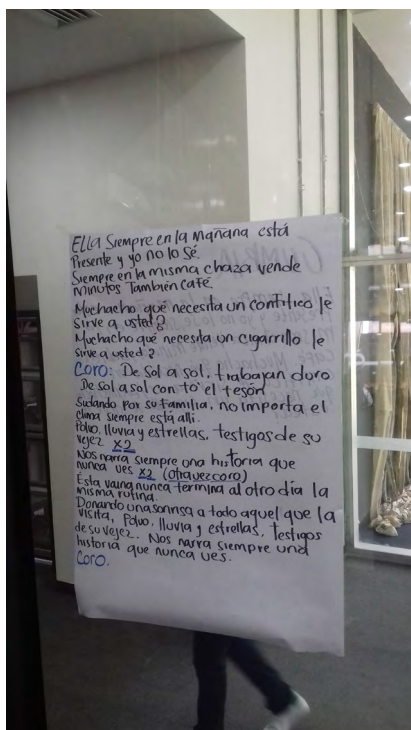 Ella Siempre en la Mañana está
Presente y yo no lo Sé.
Siempre en la misma chaza vende
minutos También café.
Muchacho qué necesita un contitico le
sirve a usted?
Muchacho qué necesita un cigarrillo le
sirve a usted?
Coro: De Sol a sol, trabajan duro
De sol a sol con to' el tesón
Sudando por su familia, no importa el
clima siempre está allí.
Polvo, lluvia y estrellas, testigos de su
vejez X2
Nos narra siempre una historia que
nunca ves X2 (otra vez coro)
Ésta vaina nunca termina al otro día la
misma rutina.
Donando una sonrisa a todo aquel que la
visita, Polvo, lluvia y estrellas, Testigos
de su vejez. Nos narra siempre una
historia que nunca ves.
Coro.